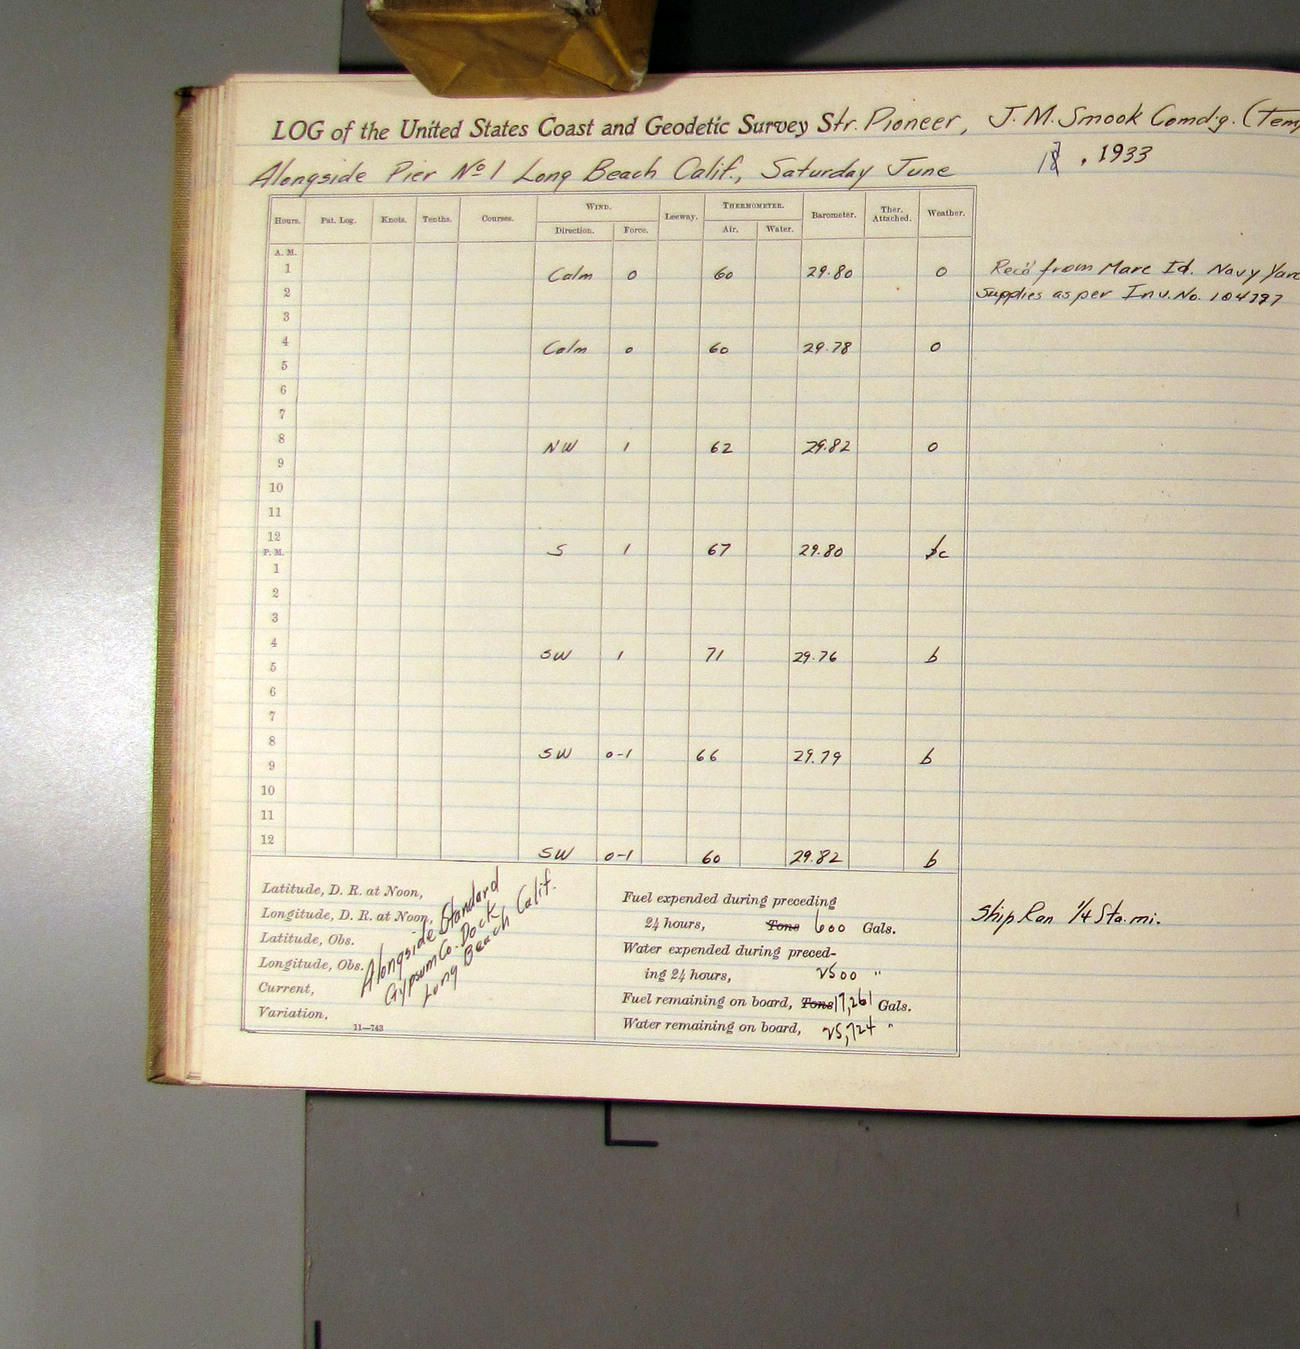 LOG of the United States Coast and Geodetic Survey Str. Pioneer, J. M. Smook Comd'g. (Tem
Alongside Pier No 1 Long Beach Calif., Saturday June , 1933
Hours. Pat. Log. Knots. Tenths. Courses. WIND. Leeway. THERMOMETER. Barometer. Ther. Attached. Weather.
Direction. Force. Air. Water.
A. M.
1 Calm 0 60 29.80 o Rec'd from Mare Id. Navy Yard
2 Supplies as per Inv. No.
3
4 Calm 0 60 29.78 o
5
6
7
8 NW 1 62 29.82 o
9
10
11
12 S 1 67 29.80 bc
P. M.
1
2
3
4 SW 1 71 29.76 b
5
6
7
8 SW 0-1 66 29.79 b
9
10
11
12 SW 0-1 60 29.82 b
Latitude, D. R. at Noon,
Longitude, D. R. at Noon,
Latitude, Obs.
Longitude, Obs.
Current,
Variation,
11—743
Alongside Standard
Gypsum Co. Dock
Long Beach Calif.
Fuel expended during preceding
24 hours, Tons 600 Gals.
Water expended during preced-
ing 24 hours, 2500 "
Fuel remaining on board, Tons 17,261 Gals.
Water remaining on board, 25,724 "
Ship Ran 1/4 Sta. mi.